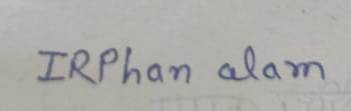 IRPhan alam